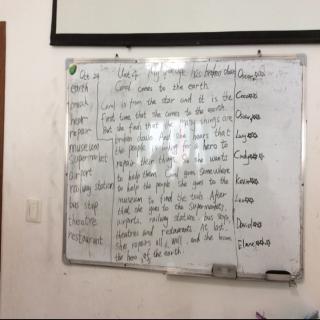 Oct 24 Unit 4 My has broken down
earth
hear
repair
museum
supermarket
airport
railway station
bus stop
theatre
restaurant
Carol comes to the earth.
Carol is from the star and it is the
first time that she comes to the earth.
But she find that many things are
broken down. And she hears that
the people looking for a hero to
repair their things. She wants
to help them. Carol goes somewhere
to help the people. She goes to the
museum to find the tools. After
that, she goes to the supermarkets,
airports, railway station, bus stops,
theatres and restaurants. At last,
she repairs all well, and she become
the hero of the earth.
Oscar
Coco
Lucy
Cindy
Kevin
Leo
David
Elaine